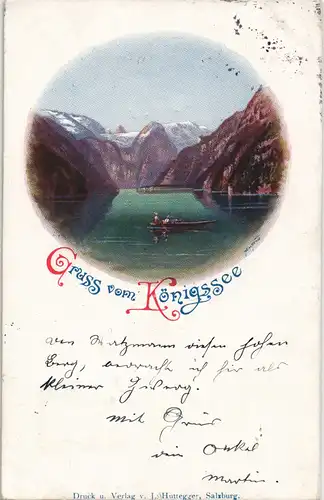 Gruss vom Königssee
Von Watzmann diesen hohen
Berg, betracht ich hir als
kleiner Zwerg.
mit Grus
dein Onkel
Martin.
Druck u. Verlag v. L. Huttegger, Salzburg.